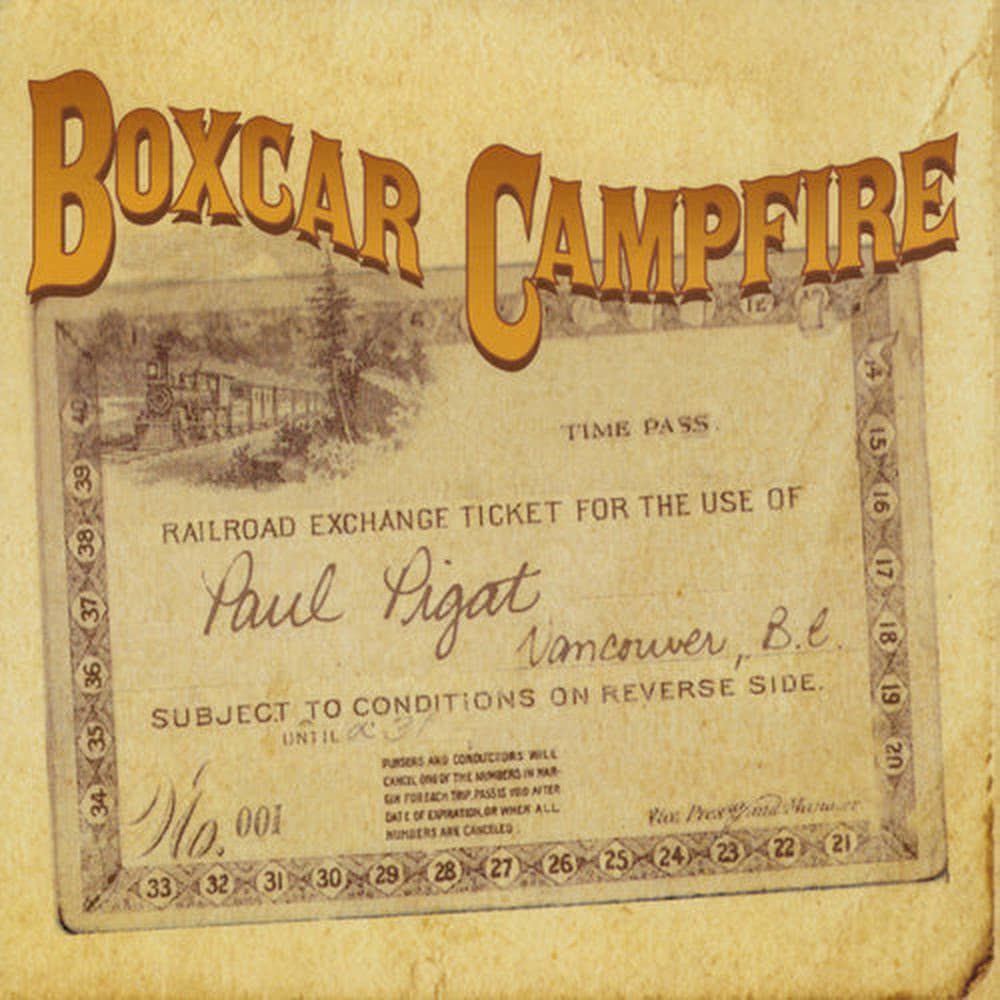 BOXCAR CAMPFIRE
12
14
TIME PASS.
15
RAILROAD EXCHANGE TICKET FOR THE USE OF
16
Paul Pigat
17
Vancouver, B.C.
18
SUBJECT TO CONDITIONS ON REVERSE SIDE.
19
UNTIL
20
PURSERS AND CONDUCTORS WILL
CANCEL ONE OF THE NUMBERS IN MAR-
GIN FOR EACH TRIP. PASS IS VOID AFTER
DATE OF EXPIRATION, OR WHEN ALL
NUMBERS ARE CANCELED.
No. 001
Vice Prest. and Manager
40
39
38
37
36
35
34
33 32 31 30 29 28 27 26 25 24 23 22 21